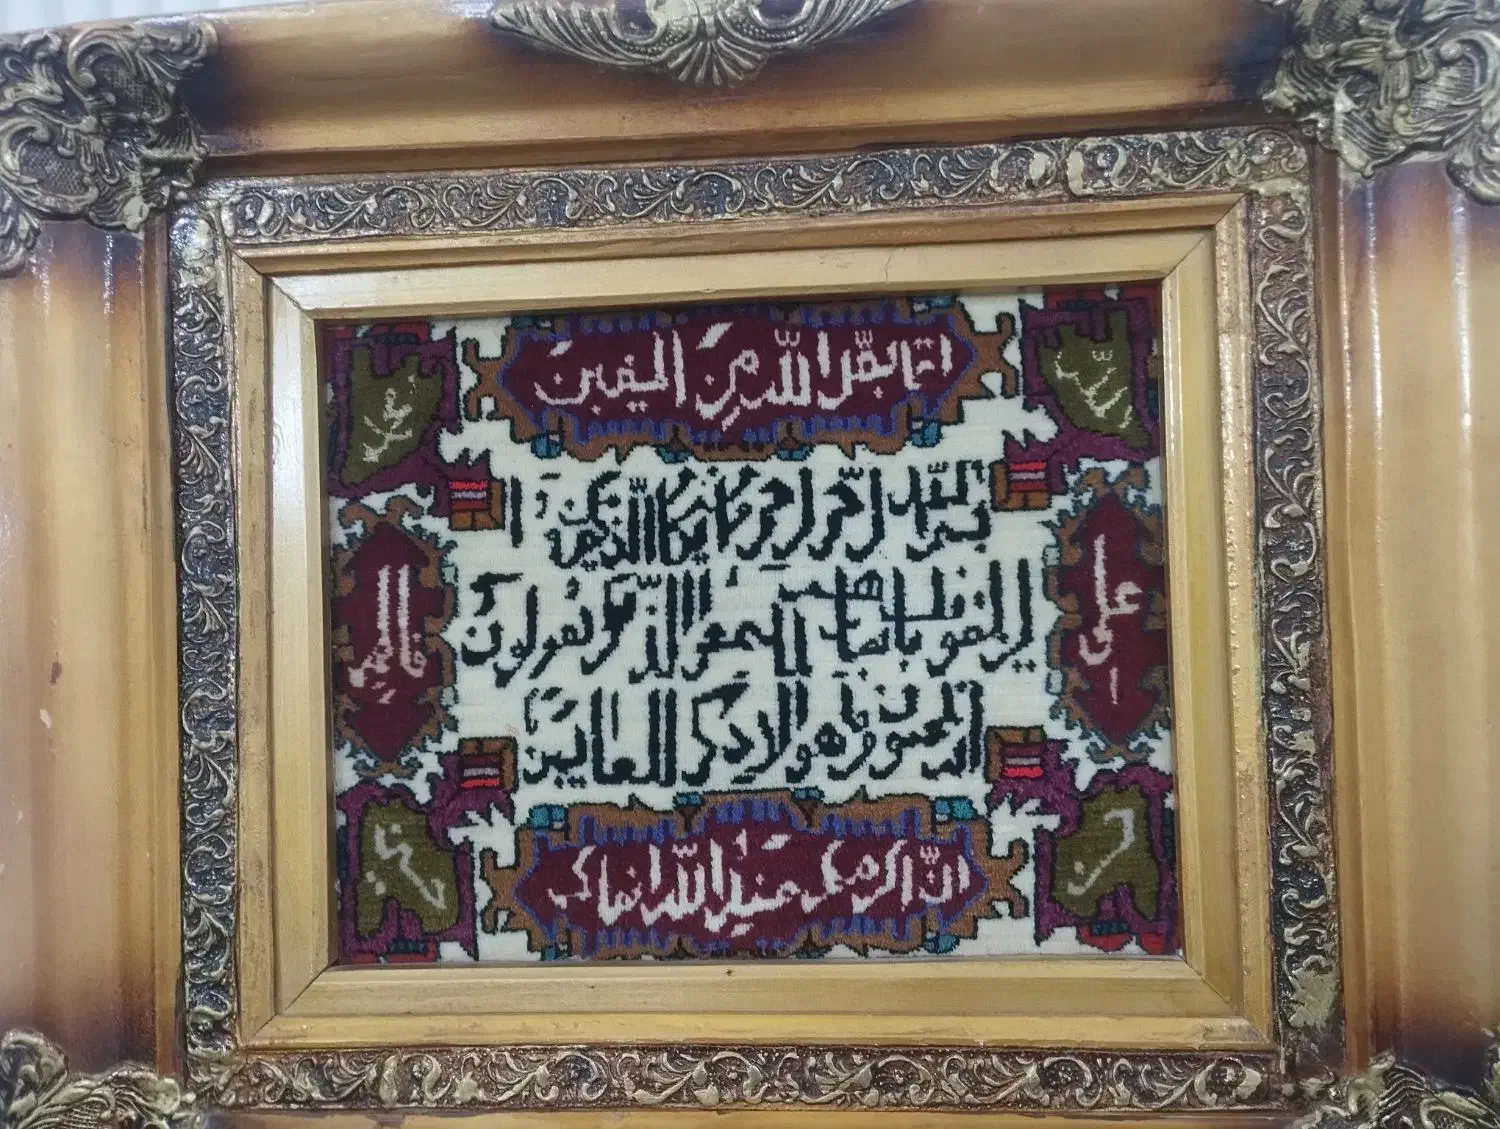 انما یتقبل الله من المتقین
محمد
بسم الله الرحمن الرحیم و ان یکاد الذین کفروا
لیزلقونک بابصارهم لما سمعوا الذکر و یقولون
انه لمجنون و ما هو الا ذکر للعالمین
علی
فاطمه
ان اکرمکم عند الله اتقاکم
حسن
حسین